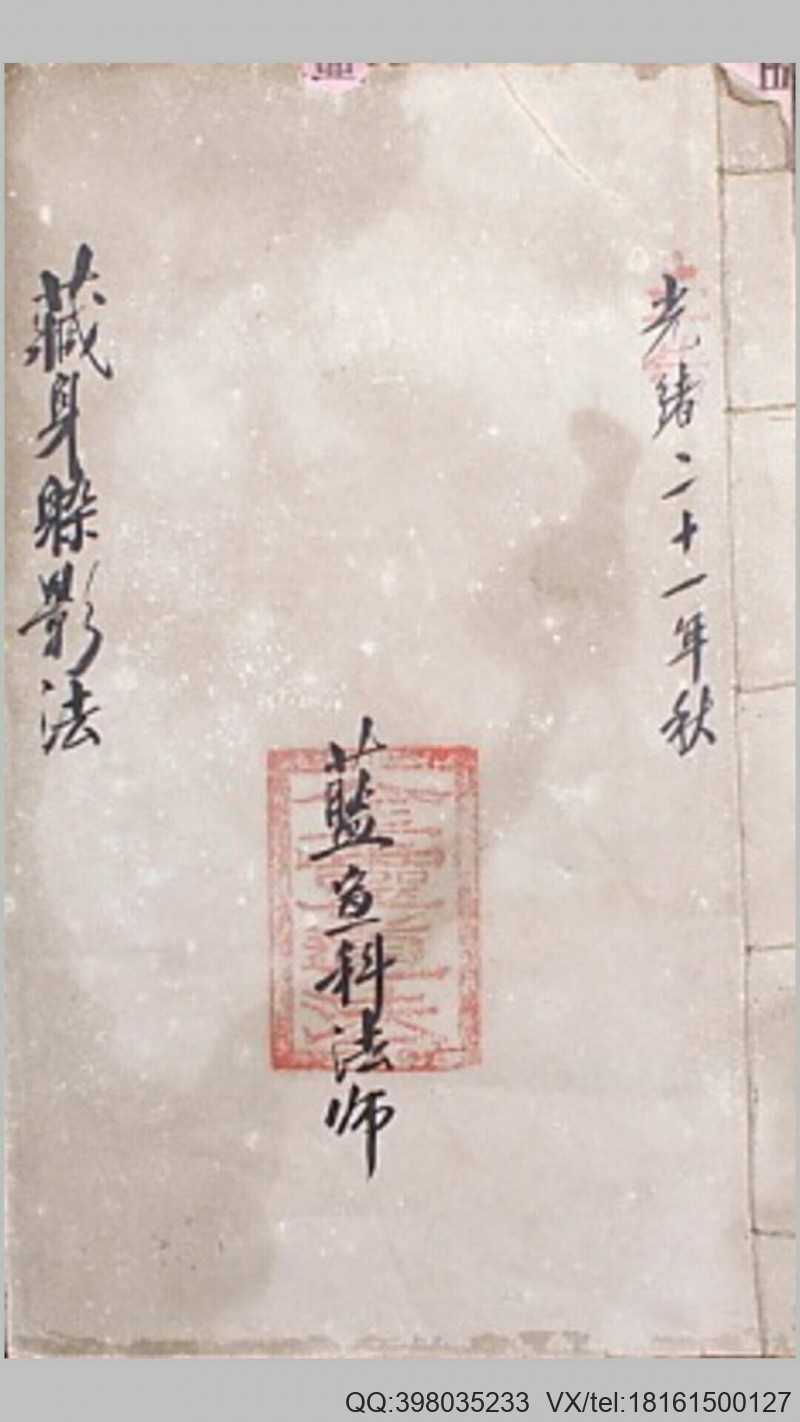 光緒二十一年秋
藍宣科法师
藏身躲影法
QQ:398035233 VX/tel:18161500127